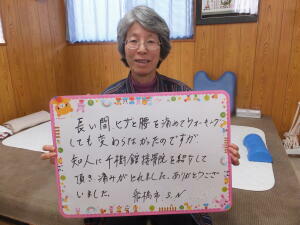 長い間、ヒザと腰を痛めてウォーキング
しても変わらなかったのですが
知人に千樹館接骨院を紹介して
頂き、痛みがとれました。ありがとうござ
いました。 船橋市 S.N